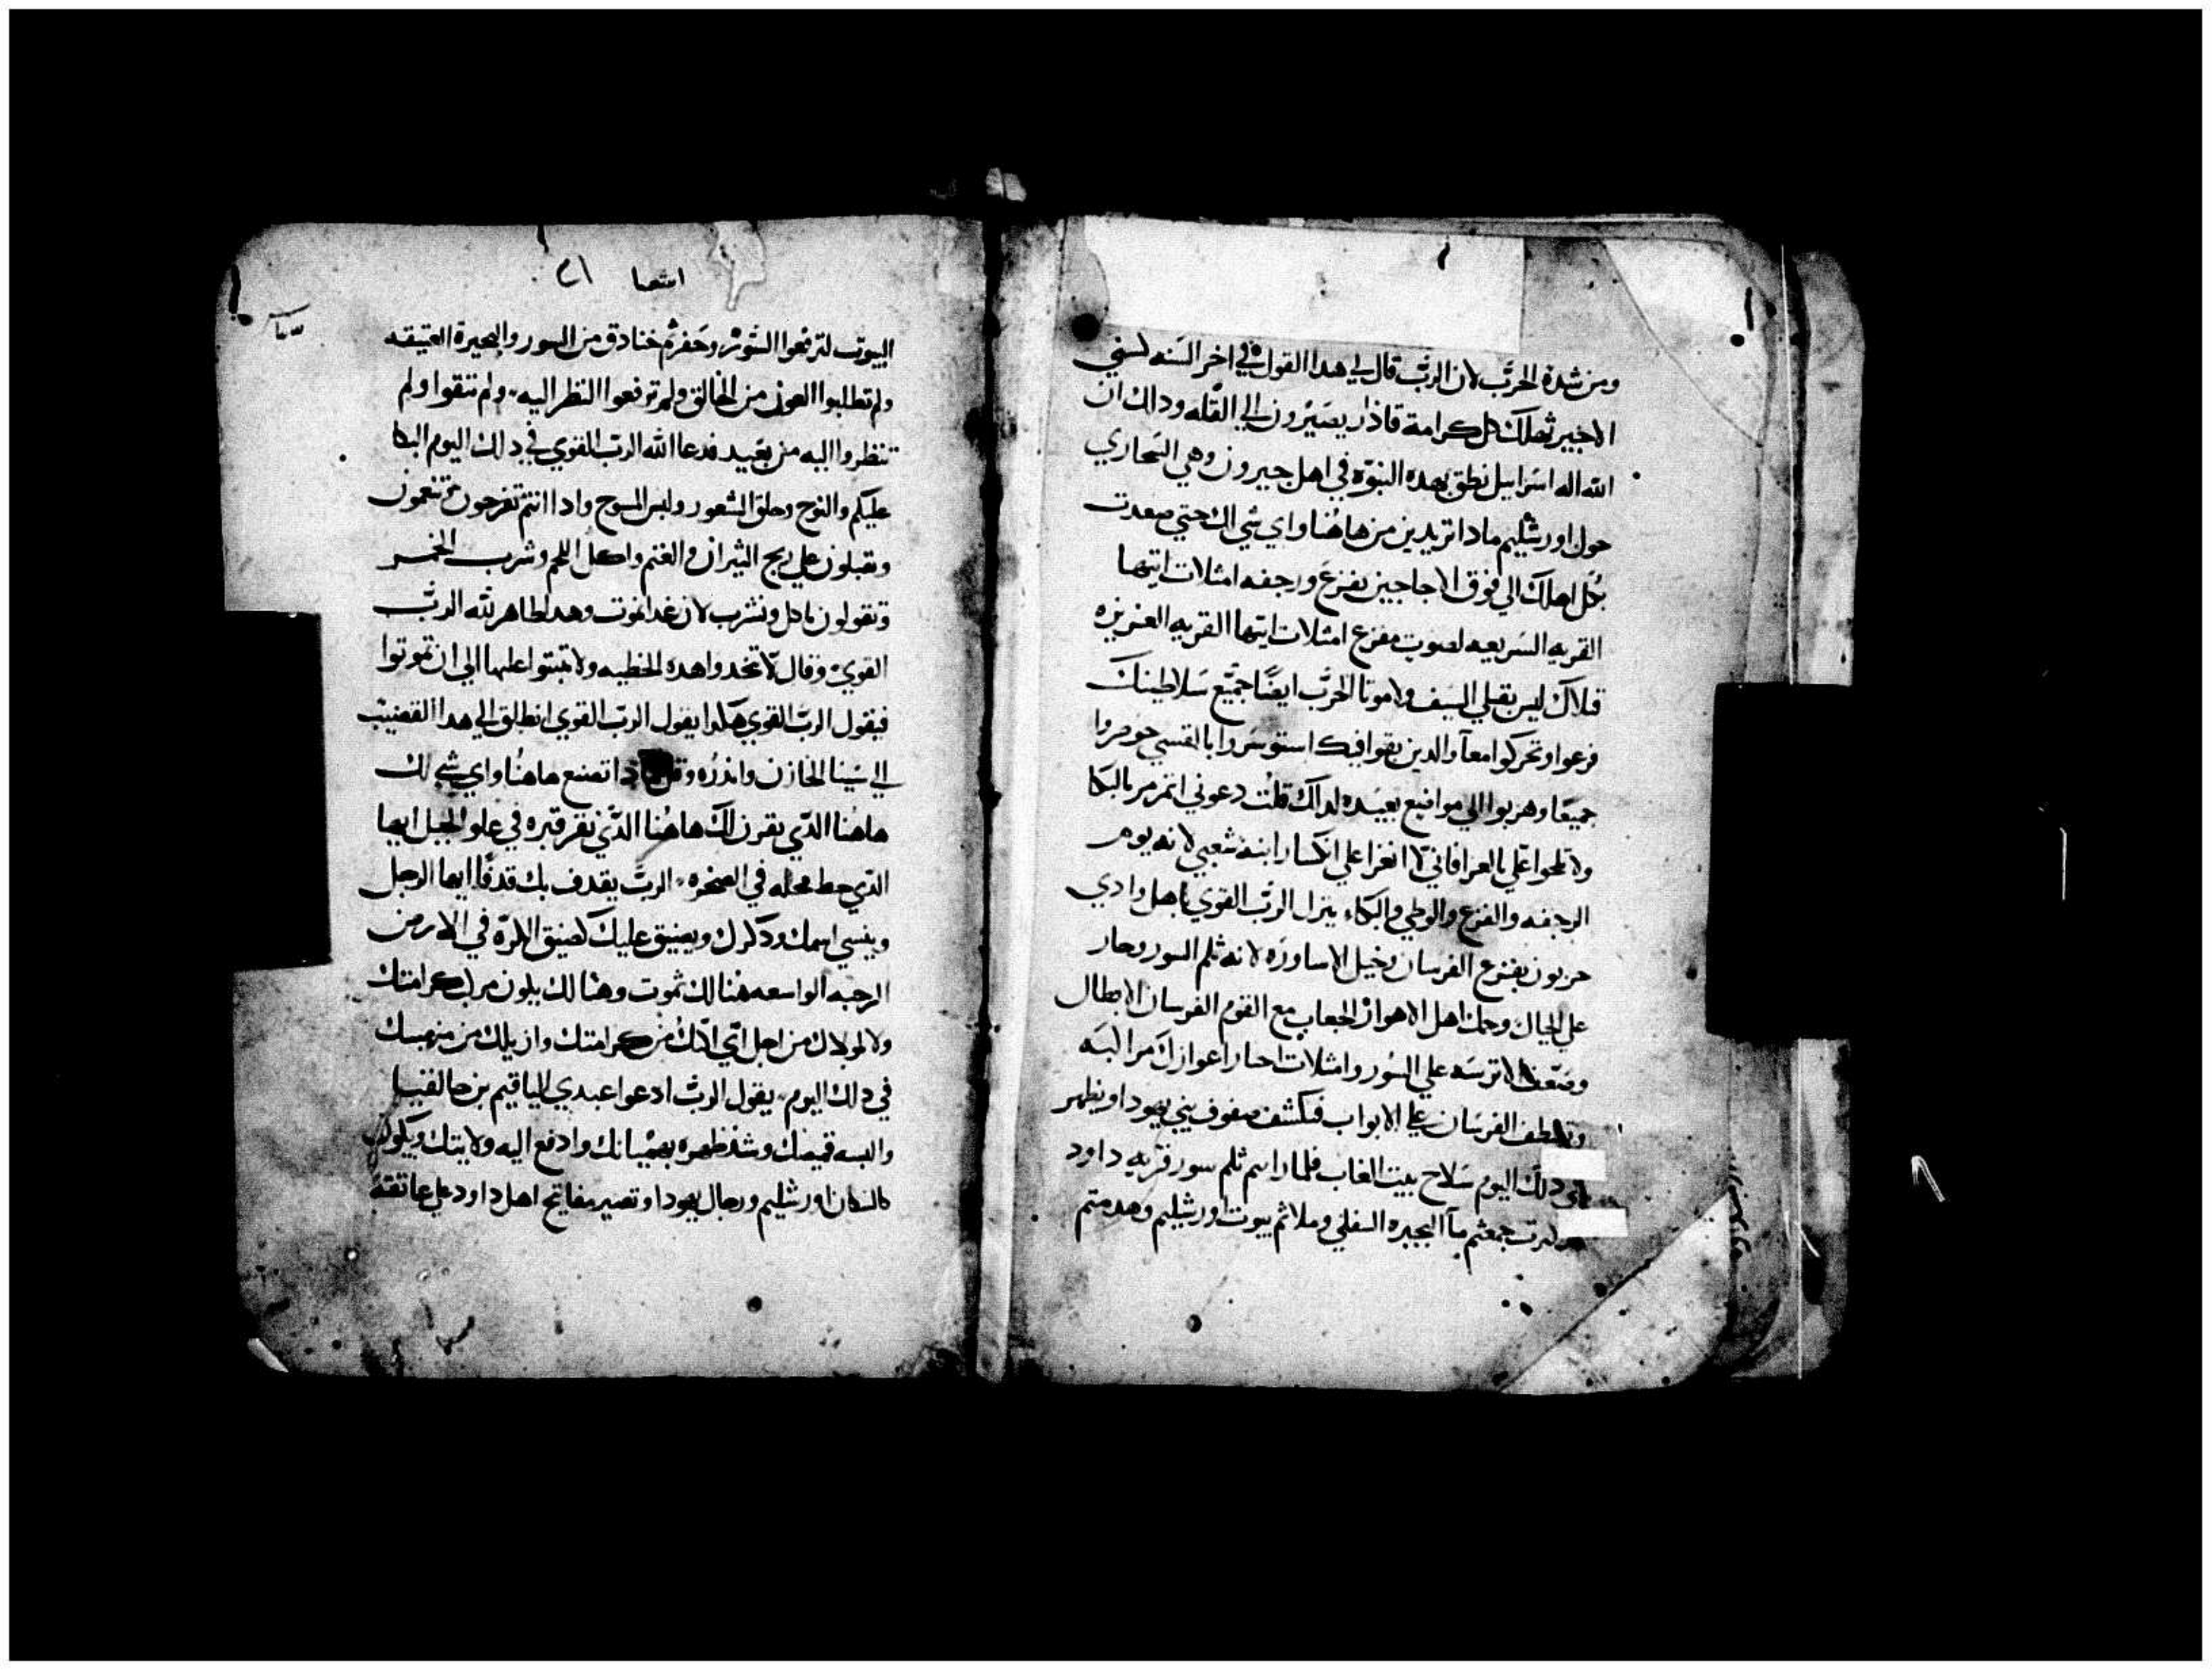 ومن شدة الحرب لان الرب قال لي هدا القول في اخر السنه لسني
الاجير تهلك كل كرامة قاذار يصيرون الي القله ودالك ان
الله اله اسراييل نطق بهده النبوه في اهل جيرون وهي الصحاري
حول اورشليم مادا تريدين من هاهنا واي شي الك حتي صعدت
كل اهلك الي فوق الاجاجين بفزع ورجفه امتلات ايتها
القريه السريعه لصوت مفزع امتلات ايتها القريه العزيزه
قتلاك ليس بقتلي السيف ولا موتا الحرب ايضًا جميع سلاطينك
فزعوا وتحركوا معآ والدين بقوا فيك استوسروا بالقسي
جميعًا وهربوا الي مواضع بعيده لداك قلت دعوني اتمرمر بالبكا
ولا تلحوا علي بالعزا فاني لا اتعزا علي انكسار ابنة شعبي لانه يوم
الرجفه والفزع والوطي والبكاء ينزل الرب القوي باهل وادي
حزيون بفزع الفرسان وخيل الاساوره لانه ثلم السور وصار
علي الجبال وحمل اهل الاهواز الجعاب مع القوم الفرسان الابطال
الاترسه علي السور وامتلات
الفرسان علي الابواب فتكشف صفوف بني يهودا ويظهر
دلك اليوم سلاح بيت الغاب فلما راسم ثلم سور قريه داود
جمعتم مآ البحيره السفلي وملاتم بيوت اورشليم وهدمتم
اشعيا ٢١
البيوت لترفعوا السور وحفرتم خنادق من السور والبحيرة العتيقه
ولم تطلبوا العون من الخالق ولم ترفعوا النظر اليه ولم تتقوا ولم
تنظروا اليه من بعيد فدعا الله الرب القوي في دلك اليوم البكا
عليكم والنوح وحلق الشعور ولبس المسوح وادا انتم تفرحون وتنعمون
وتقبلون علي دبح الثيران والغنم واكل اللحم وشرب الخمر
وتقولون ناكل ونشرب لان غدا نموت وهدا ظاهر لله الرب
القوي وقال لا تتخدوا هده الخطيه ولا تبتوا عليها الي ان تموتوا
فيقول الرب القوي هكدا يقول الرب القوي انطلق الي هدا القضيب
الي سبنا الخازن واندره وقل مادا تصنع هاهنا واي شي لك
هاهنا الدي نقرت لك هاهنا الدي نقر قبره في علو الجبل ايها
الدي حط محله في الصخره الرب يقدف بك قدفًا ايها الرجل
وينسي اسمك ودكرك ويضيق عليك كضيق الكرة في الارض
الرحبه الواسعه هنالك تموت وهنالك يكون مراكب كرامتك
من اجل اني ازلك من كرامتك وازيلك من
في دلك اليوم يقول الرب ادعوا عبدي الياقيم بن حالفنيا
والبسه قميصك وشد ظهره بهميانك وادفع اليه ولايتك ويكون
لسكان اورشليم ورجال يهودا وتصير مفاتيح اهل داود علي عاتقه